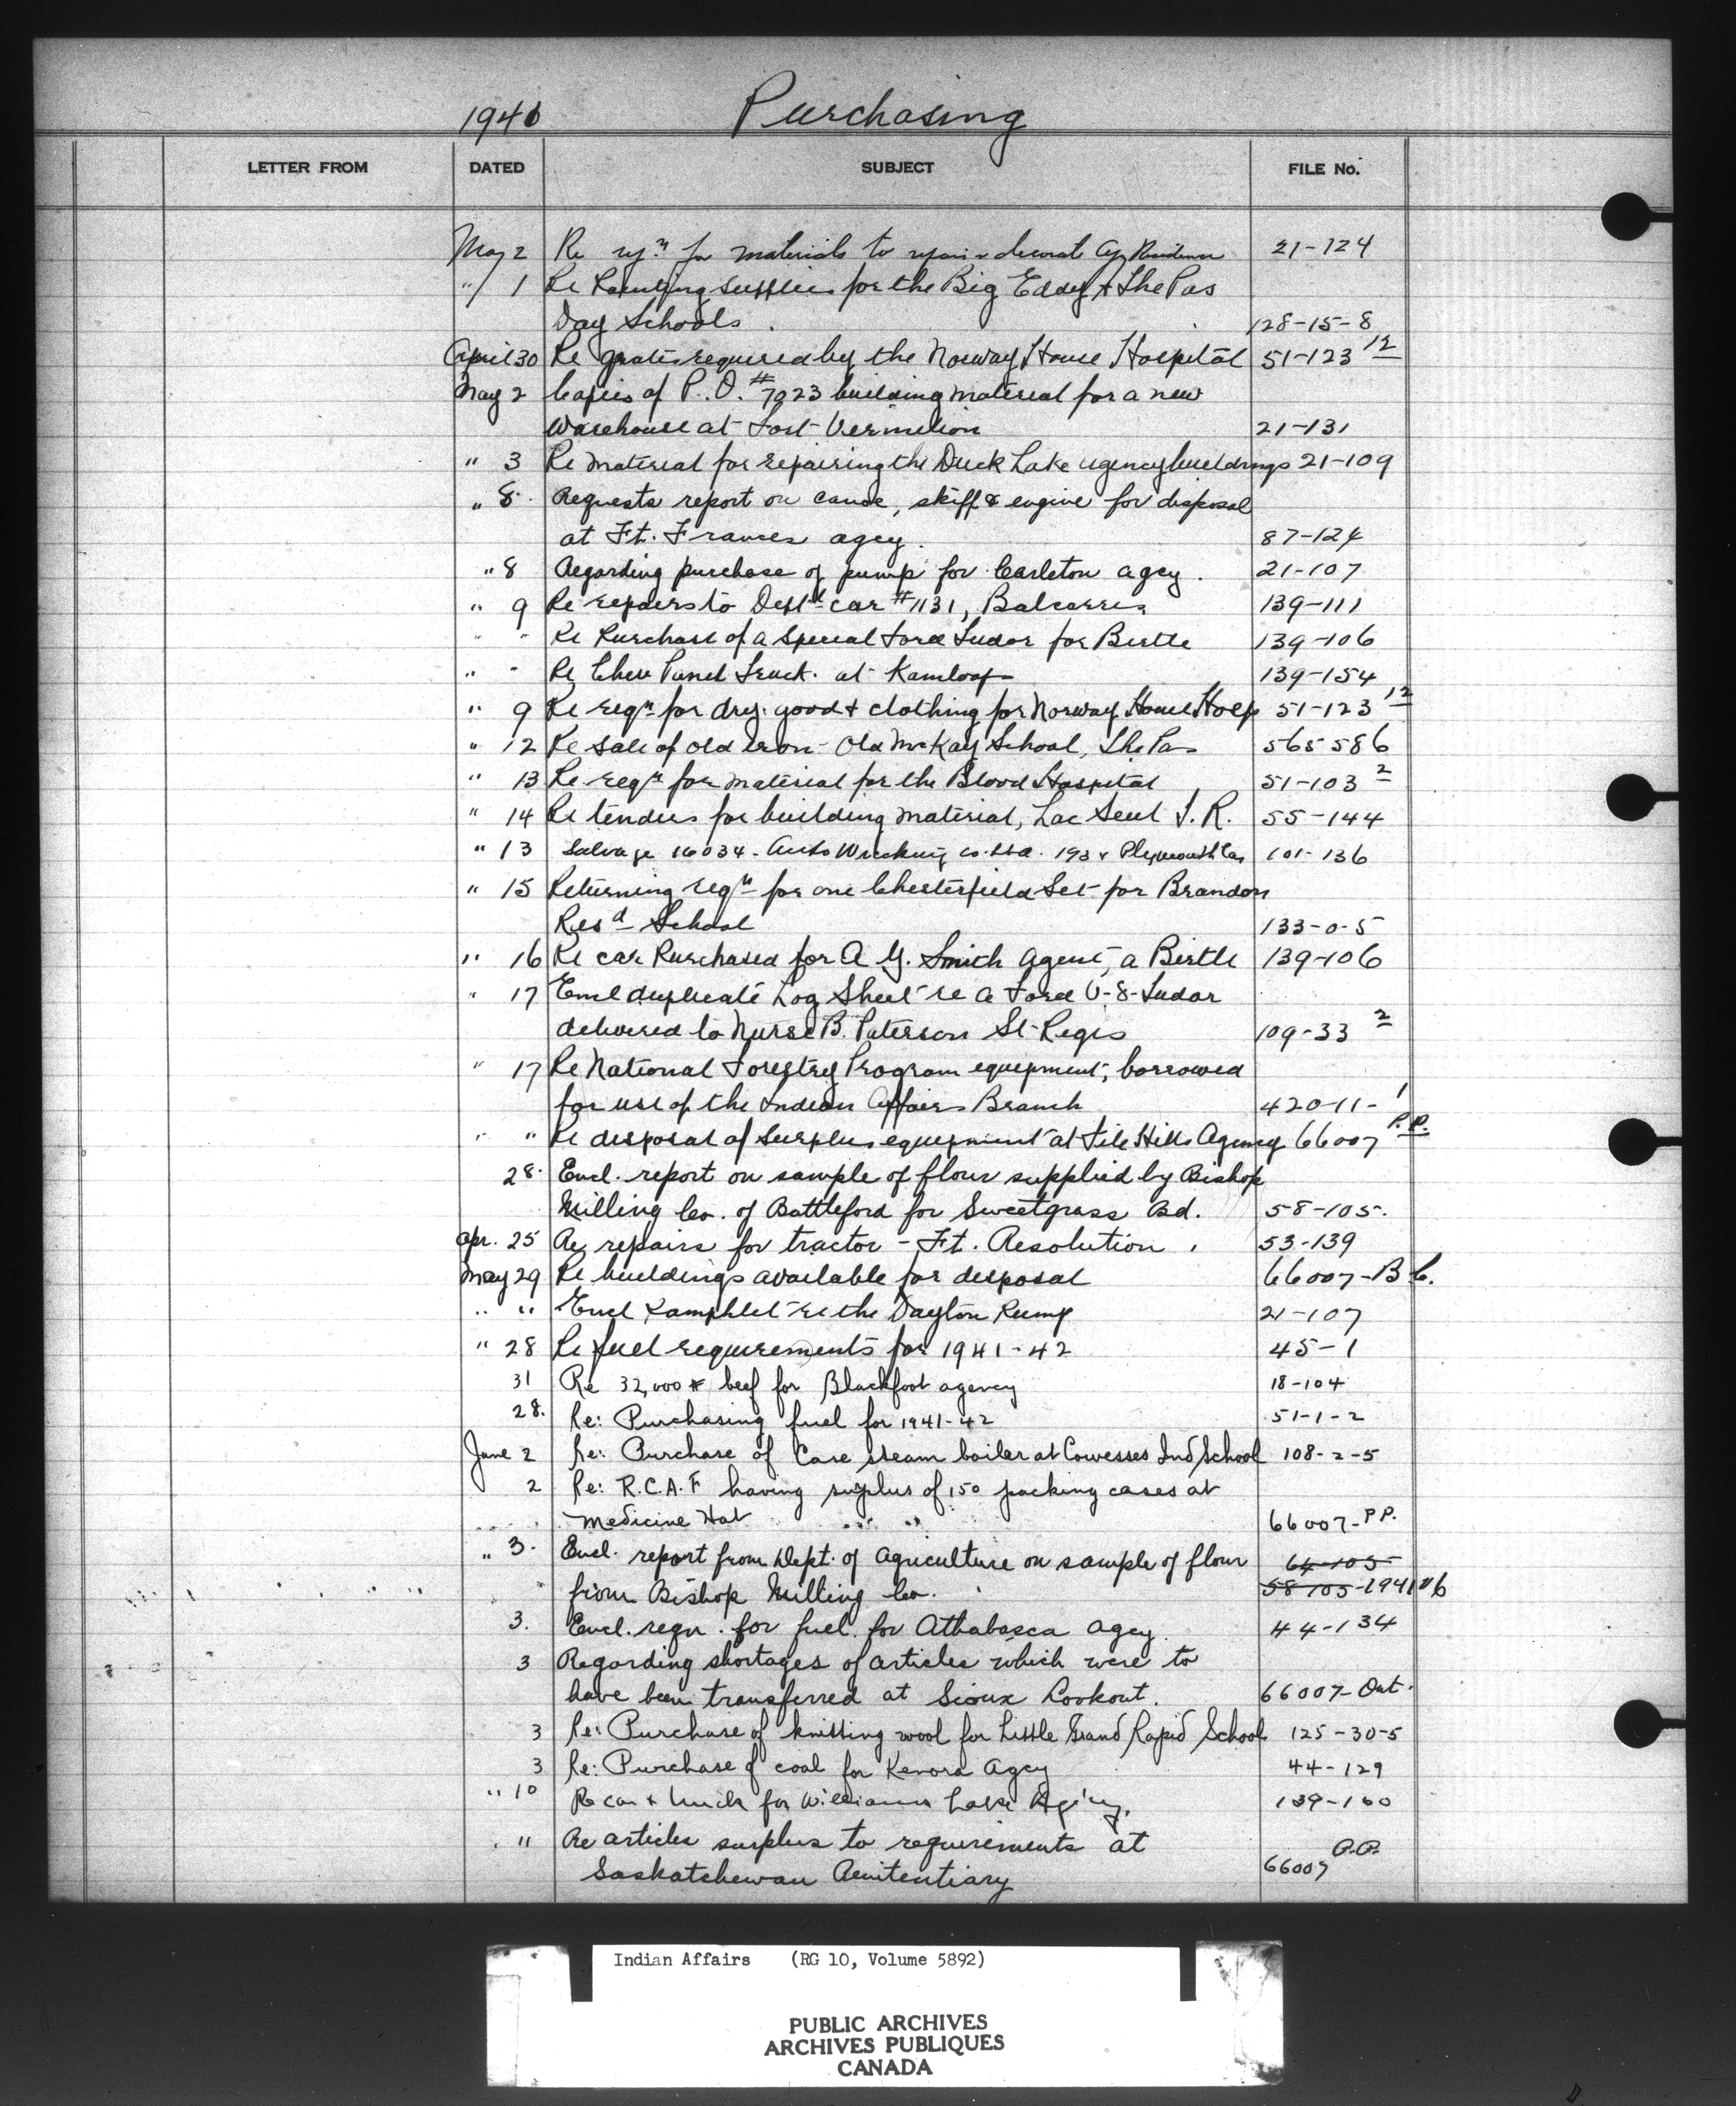 1941 Purchasing
LETTER FROM DATED SUBJECT FILE No.
May 2 Re reqn for materials to repair & decorate Agy Residence 21-124
" 1 Re Painting supplies for the Big Eddy & The Pas
Day Schools. 128-15-8
April 30 Re grates required by the Norway House Hospital 51-123 12
May 2 Copies of P.O. # 7023 building material for a new
Warehouse at Fort Vermilion 21-131
" 3 Re material for repairing the Duck Lake agency buildings 21-109
" 8. Requests report on canoe, skiff & engine for disposal
at Ft. Frances agcy. 87-124
" 8 Regarding purchase of pump for Carleton agcy. 21-107
" 9 Re repairs to Deptl car #1131, Balcarres 139-111
" " Re Purchase of a Special Ford Tudor for Birtle 139-106
" " Re Chev Panel Truck. at Kamloops 139-154
" 9 Re reqn for dry. good & clothing for Norway House Hosp 51-123 12
" 12 Re sale of old iron - Old McKay School, The Pas 565586
" 13 Re reqn for material for the Blood Hospital 51-103 2
" 14 Re tenders for building material, Lac Seul I.R. 55-144
" 13 Salvage 16034 - Auto Wrecking Co. Ltd. 193 Plymouth Car 101-136
" 15 Returning reqn for one Chesterfield Set for Brandon
Resd School 133-0-5
" 16 Re car Purchased for A G. Smith Agent, a Birtle 139-106
" 17 Encl duplicate Log Sheet re a Ford V-8-Tudor
delivered to Nurse B. Paterson St-Regis 109-33 2
" 17 Re National Forestry Program equipment, borrowed
for use of the Indian Affairs Branch 420-11-1
" " Re disposal of surplus equipment at File Hills Agency 66007 P.P.
28. Encl. report on sample of flour supplied by Bishop
Milling Co. of Battleford for Sweetgrass Bd. 58-105.
Apr. 25 Re repairs for tractor - Ft. Resolution. 53-139
May 29 Re buildings available for disposal 66007-B.C.
" " Encl Pamphlet re the Dayton Pump 21-107
" 28 Re fuel requirements for 1941-42 45-1
31 Re 32,000 # beef for Blackfoot agency 18-104
28. Re: Purchasing fuel for 1941-42 51-1-2
June 2 Re: Purchase of Case steam boiler at Cowesses Ind School 108-2-5
2 Re: R.C.A.F having surplus of 150 packing cases at
Medicine Hat 66007-P.P.
" 3. Encl. report from Dept. of Agriculture on sample of flour 64-105
from Bishop Milling Co. 58-105-1941
3. Encl. reqn. for fuel for Athabasca Agcy. 44-134
3 Regarding shortages of articles which were to
have been transferred at Sioux Lookout. 66007-Ont.
3 Re: Purchase of knitting wool for Little Grand Rapid School 125-30-5
3 Re: Purchase of coal for Kenora Agcy 44-129
" 10 Re car & truck for Williams Lake Agency. 139-160
" " Re articles surplus to requirements at
Saskatchewan Penitentiary 66007 P.P.
Indian Affairs (RG 10, Volume 5892)
PUBLIC ARCHIVES
ARCHIVES PUBLIQUES
CANADA